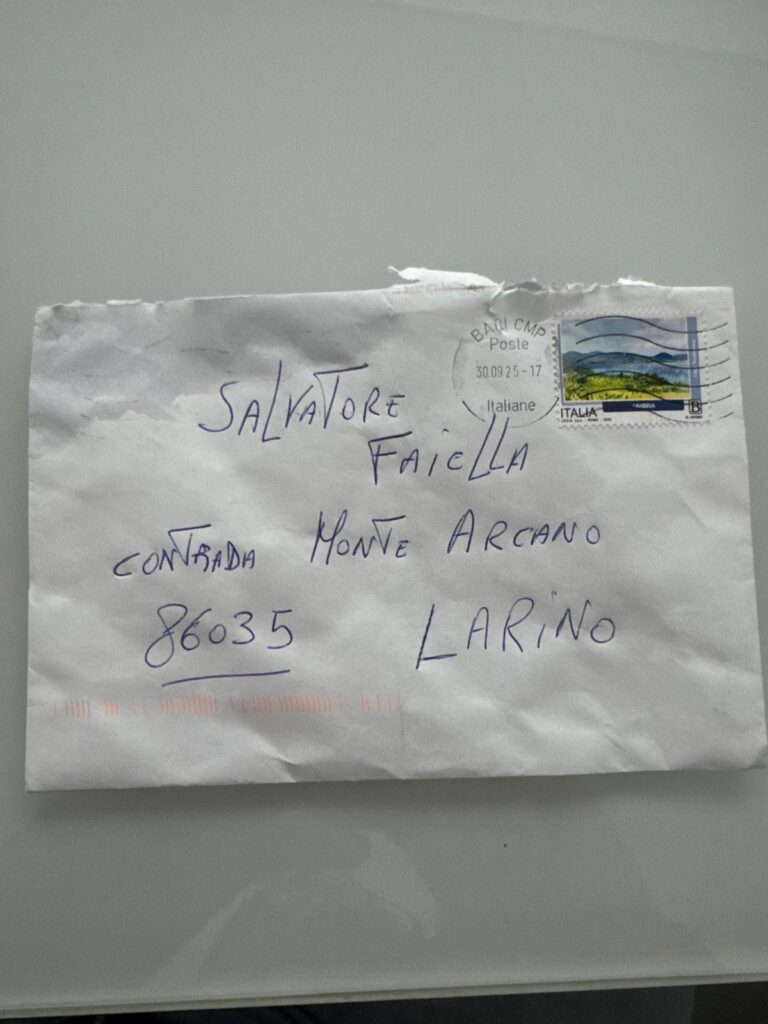 BARI CMP
Poste
30.09.25-17
Italiane
ITALIA UMBRIA B
SALVATORE
FAIELLA
CONTRADA MONTE ARCANO
86035 LARINO